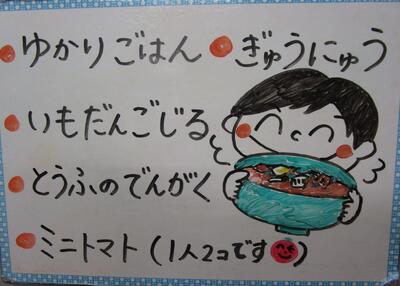 ゆかりごはん ぎゅうにゅう
いもだんごじる
とうふのでんがく
ミニトマト(1人2コです)